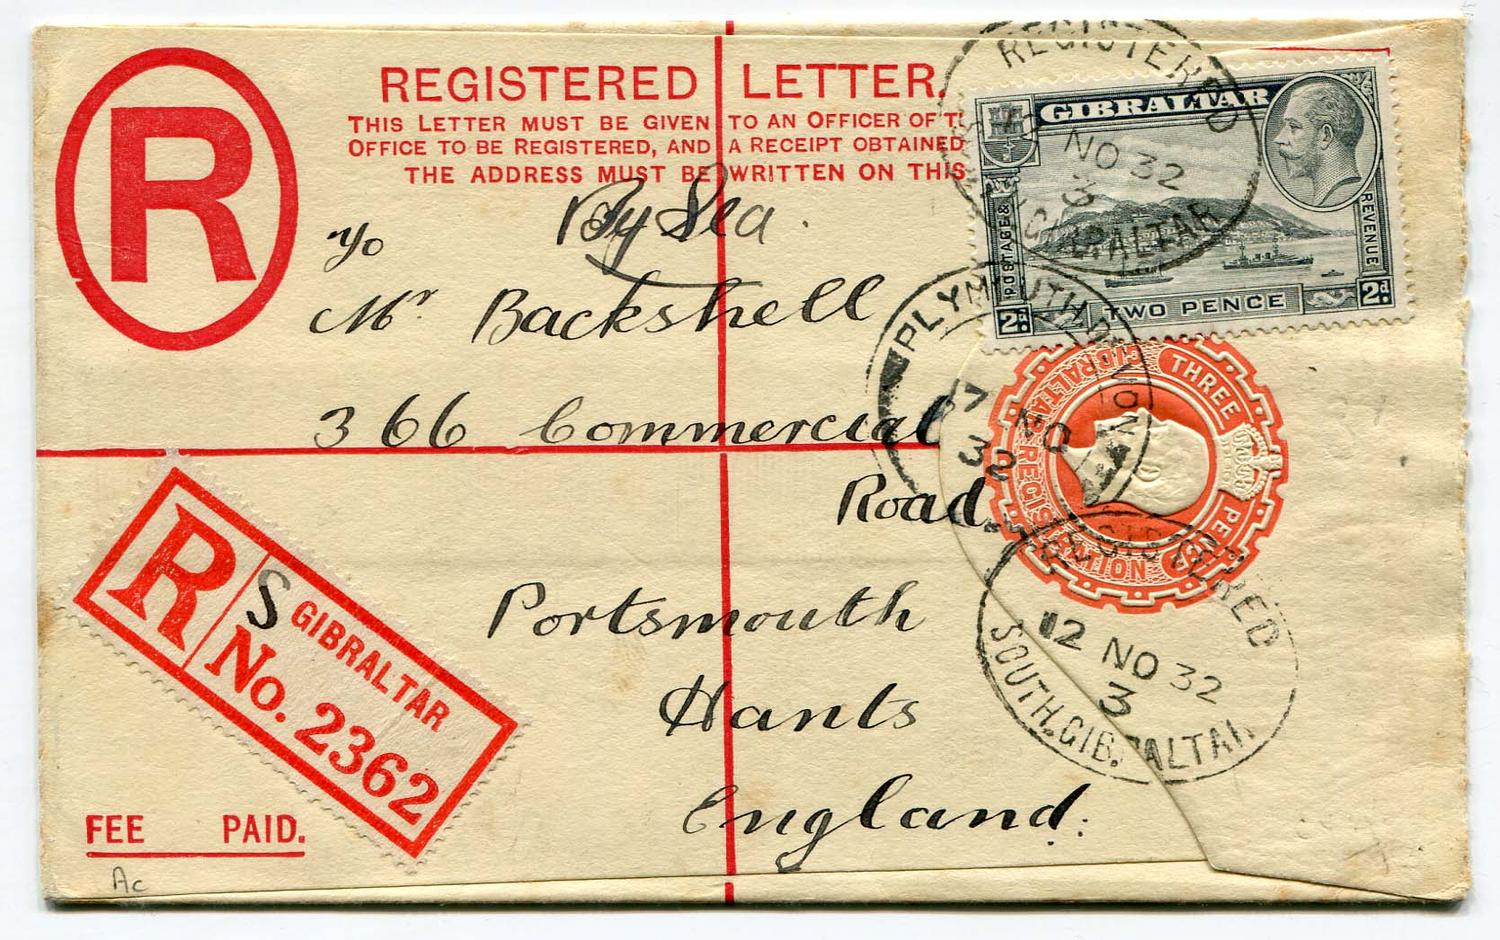 R
REGISTERED LETTER.
THIS LETTER MUST BE GIVEN TO AN OFFICER OF
OFFICE TO BE REGISTERED, AND A RECEIPT OBTAINED
THE ADDRESS MUST BE WRITTEN ON THIS
By Sea.
To
Mr Backshell
366 Commercial
Road.
Portsmouth
Hants
England.
REGISTERED
10 NO 32
3
GIBRALTAR
GIBRALTAR
POSTAGE &
REVENUE
2d
TWO PENCE
2d
PLYMOUTH DEVON
NO
32
GIBRALTAR REGISTRATION
THREE PENCE
REGISTERED
12 NO 32
3
SOUTH.GIBRALTAR
R
S GIBRALTAR
No. 2362
FEE PAID.
Ac